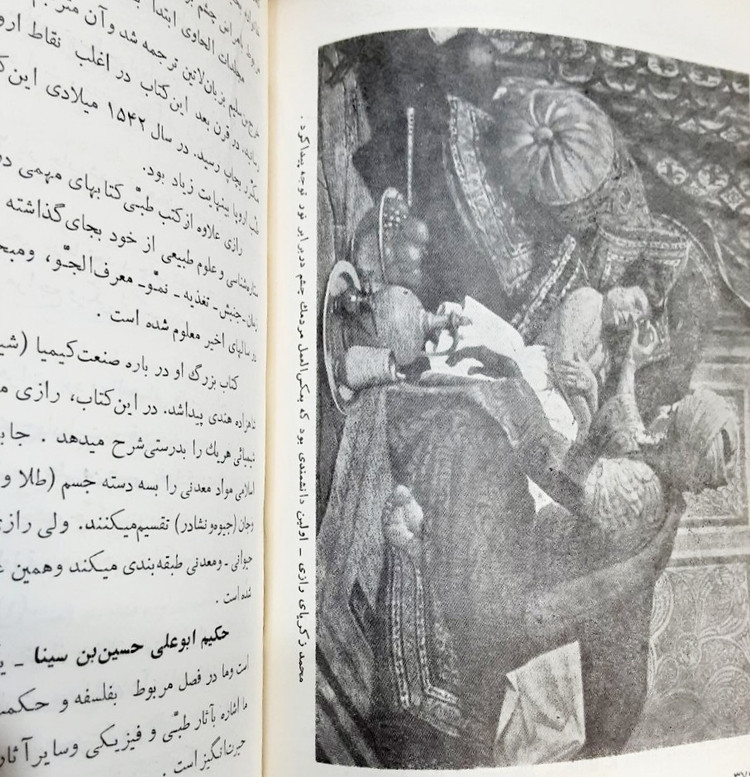 مربوط بامراض چشم بو
مجلدات الحاوی ابتدا
فرج‌بن‌سلیم بزبان‌لاتین ترجمه شد وآن متر
رسانید. در قرن بعد این‌کتاب در اغلب نقاط ارو
مکرر بچاپ رسید. در سال ۱۵۴۲ میلادی این‌ک
طب اروپا بینهایت زیاد بود.
رازی علاوه ازکتب طبّی کتابهای مهمی د
ستاره‌شناسی و علوم طبیعی از خود بجای‌گذاشته
زمان ـ جنبش ـ تغذیه ـ نموّ ـ معرف‌الجوّ، ومبح
در سالهای اخیر معلوم شده است .
کتاب بزرگ او در باره صنعت‌کیمیا (شی
شاهزاده هندی پیداشد. در این‌کتاب، رازی م
شیمیائی هریك را بدرستی‌شرح میدهد . جاب
اسلامی مواد معدنی را بسه دسته جسم (طلا و
وجان (جیوه‌و نشادر) تقسیم‌میکنند. ولی رازی
حیوانی ـ ومعدنی طبقه‌بندی میکند وهمین
شده است .
حکیم ابوعلی حسین‌بن سینا ـ ی
است وما در فصل مربوط بفلسفه و حکم
ما اشاره بآثار طبّی و فیزیکی وسایر آثار
حیرت‌انگیز است .
محمد زکریای رازی ـ اولین دانشمندی بود که بعکس‌العمل مردمك چشم دربرابر نور توجه پیدا کرد .